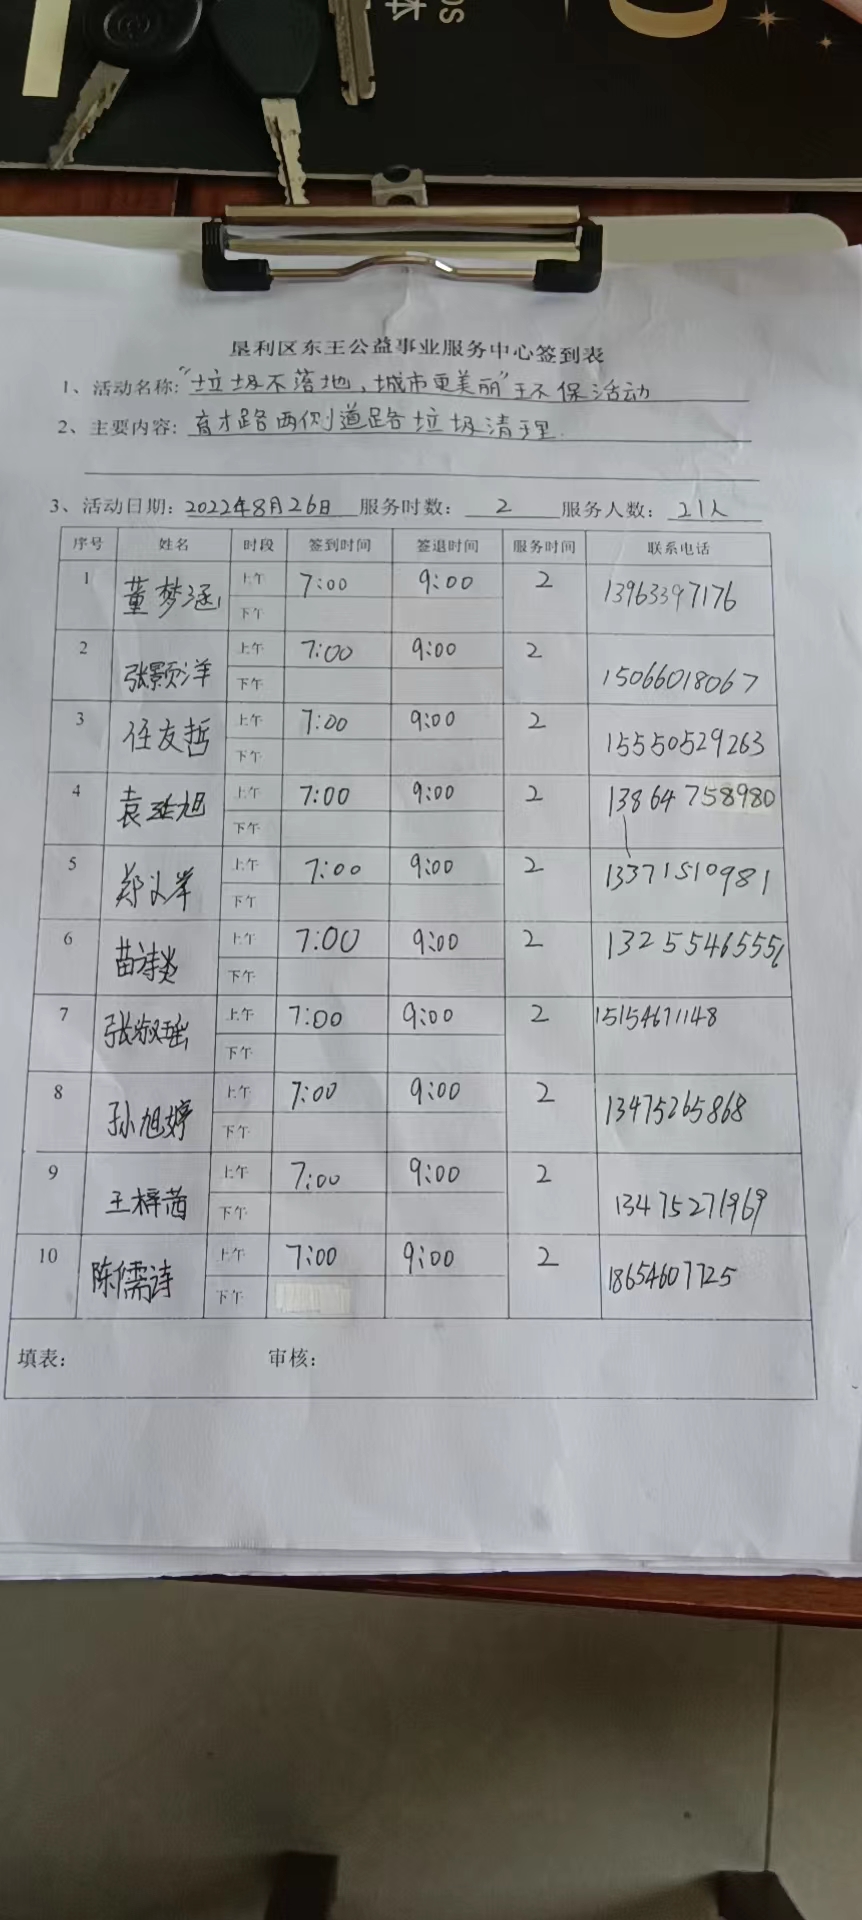 本
OS
垦利区东王公益事业服务中心签到表
1、活动名称:"垃圾不落地,城市更美丽"环保活动
2、主要内容: 育才路两侧道路垃圾清理.
3、活动日期: 2022年8月26日 服务时数: 2 服务人数: 21人
序号 姓名 时段 签到时间 签退时间 服务时间 联系电话
1 董梦涵 上午 7:00 9:00 2 13963397176
下午
2 张颢洋 上午 7:00 9:00 2 15066018067
下午
3 任友哲 上午 7:00 9:00 2 15550529263
下午
4 袁延旭 上午 7:00 9:00 2 13864758980
下午
5 郑义 上午 7:00 9:00 2 13371510981
下午
6 苗诗 上午 7:00 9:00 2 13255465556
下午
7 张淑瑶 上午 7:00 9:00 2 15154671148
下午
8 孙旭婷 上午 7:00 9:00 2 13475265868
下午
9 王梓茜 上午 7:00 9:00 2 13475271969
下午
10 陈儒诗 上午 7:00 9:00 2 18654607725
下午
填表: 审核: